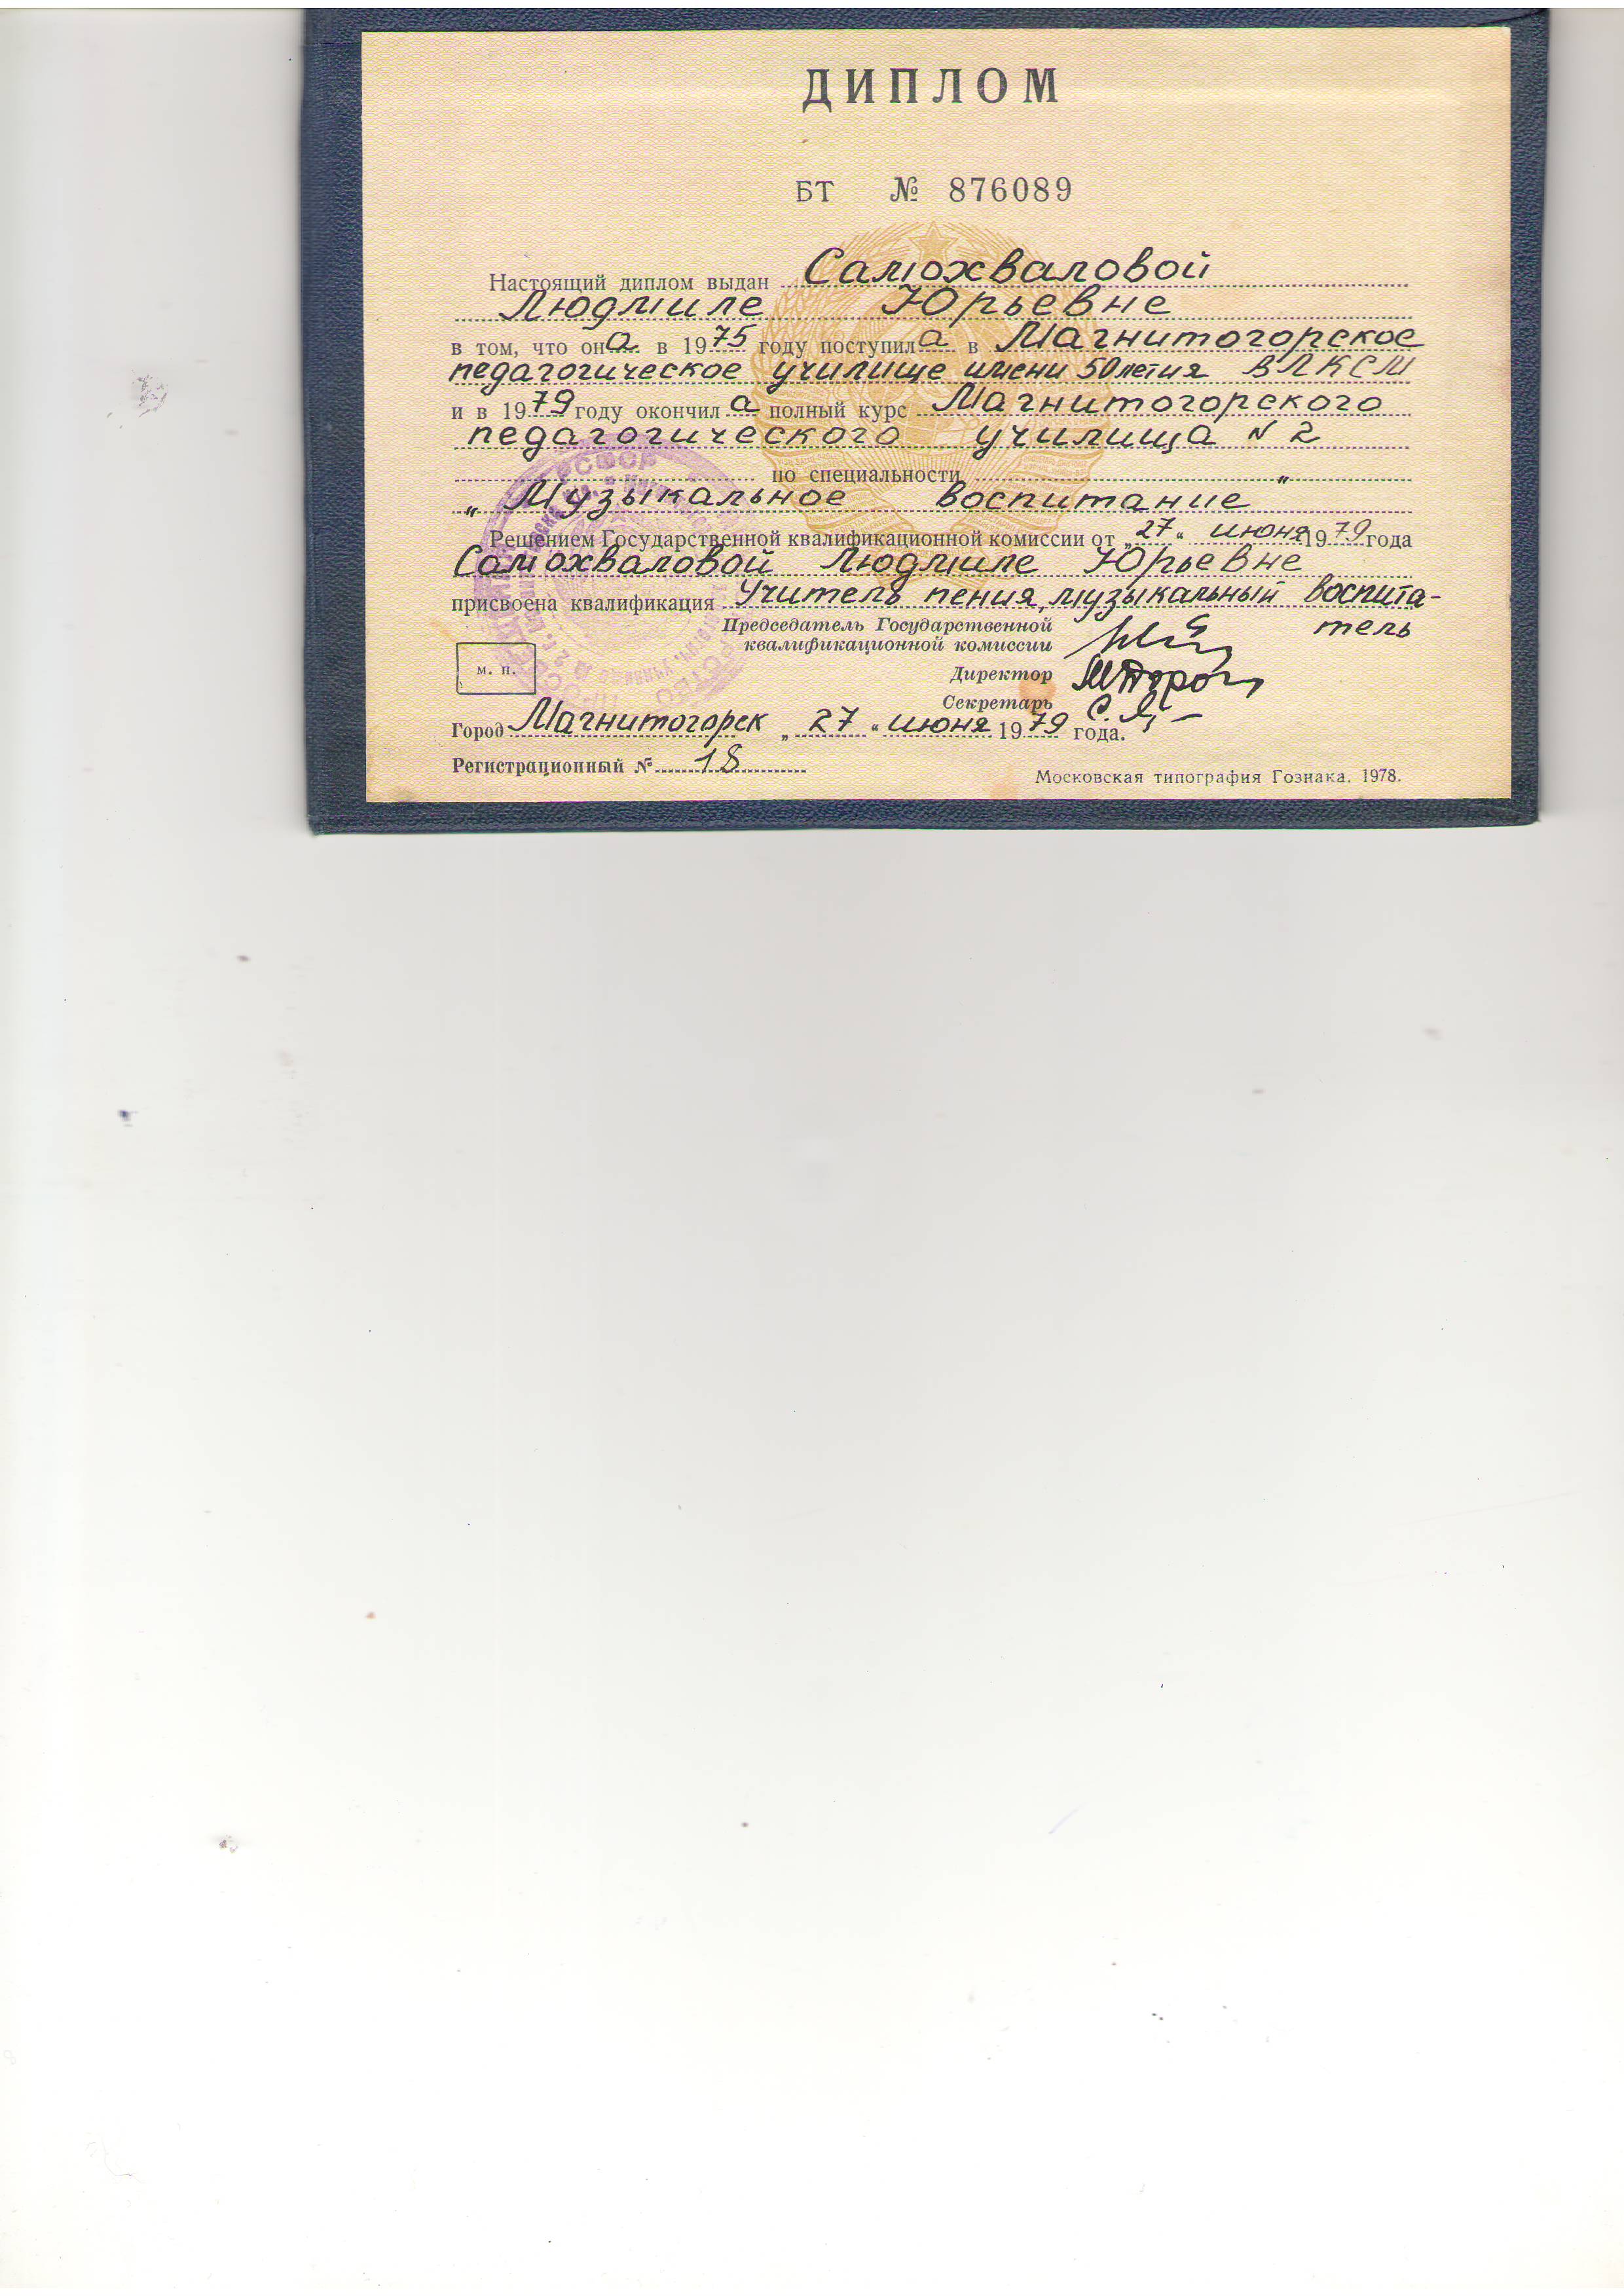 ДИПЛОМ
БТ № 876089
Настоящий диплом выдан Самохваловой
Людмиле Юрьевне
в том, что она в 1975 году поступила в Магнитогорское
педагогическое училище имени 50летия ВЛКСМ
и в 1979 году окончила полный курс Магнитогорского
педагогического училища № 2
по специальности
„Музыкальное воспитание"
Решением Государственной квалификационной комиссии от „27“ июня 1979 года
Самохваловой Людмиле Юрьевне
присвоена квалификация Учитель пения, музыкальный воспита-
тель
Председатель Государственной
квалификационной комиссии
м. п.
Директор
Секретарь
Город Магнитогорск „27“ июня 1979 года.
Регистрационный № 18
Московская типография Гознака. 1978.
РСФСР